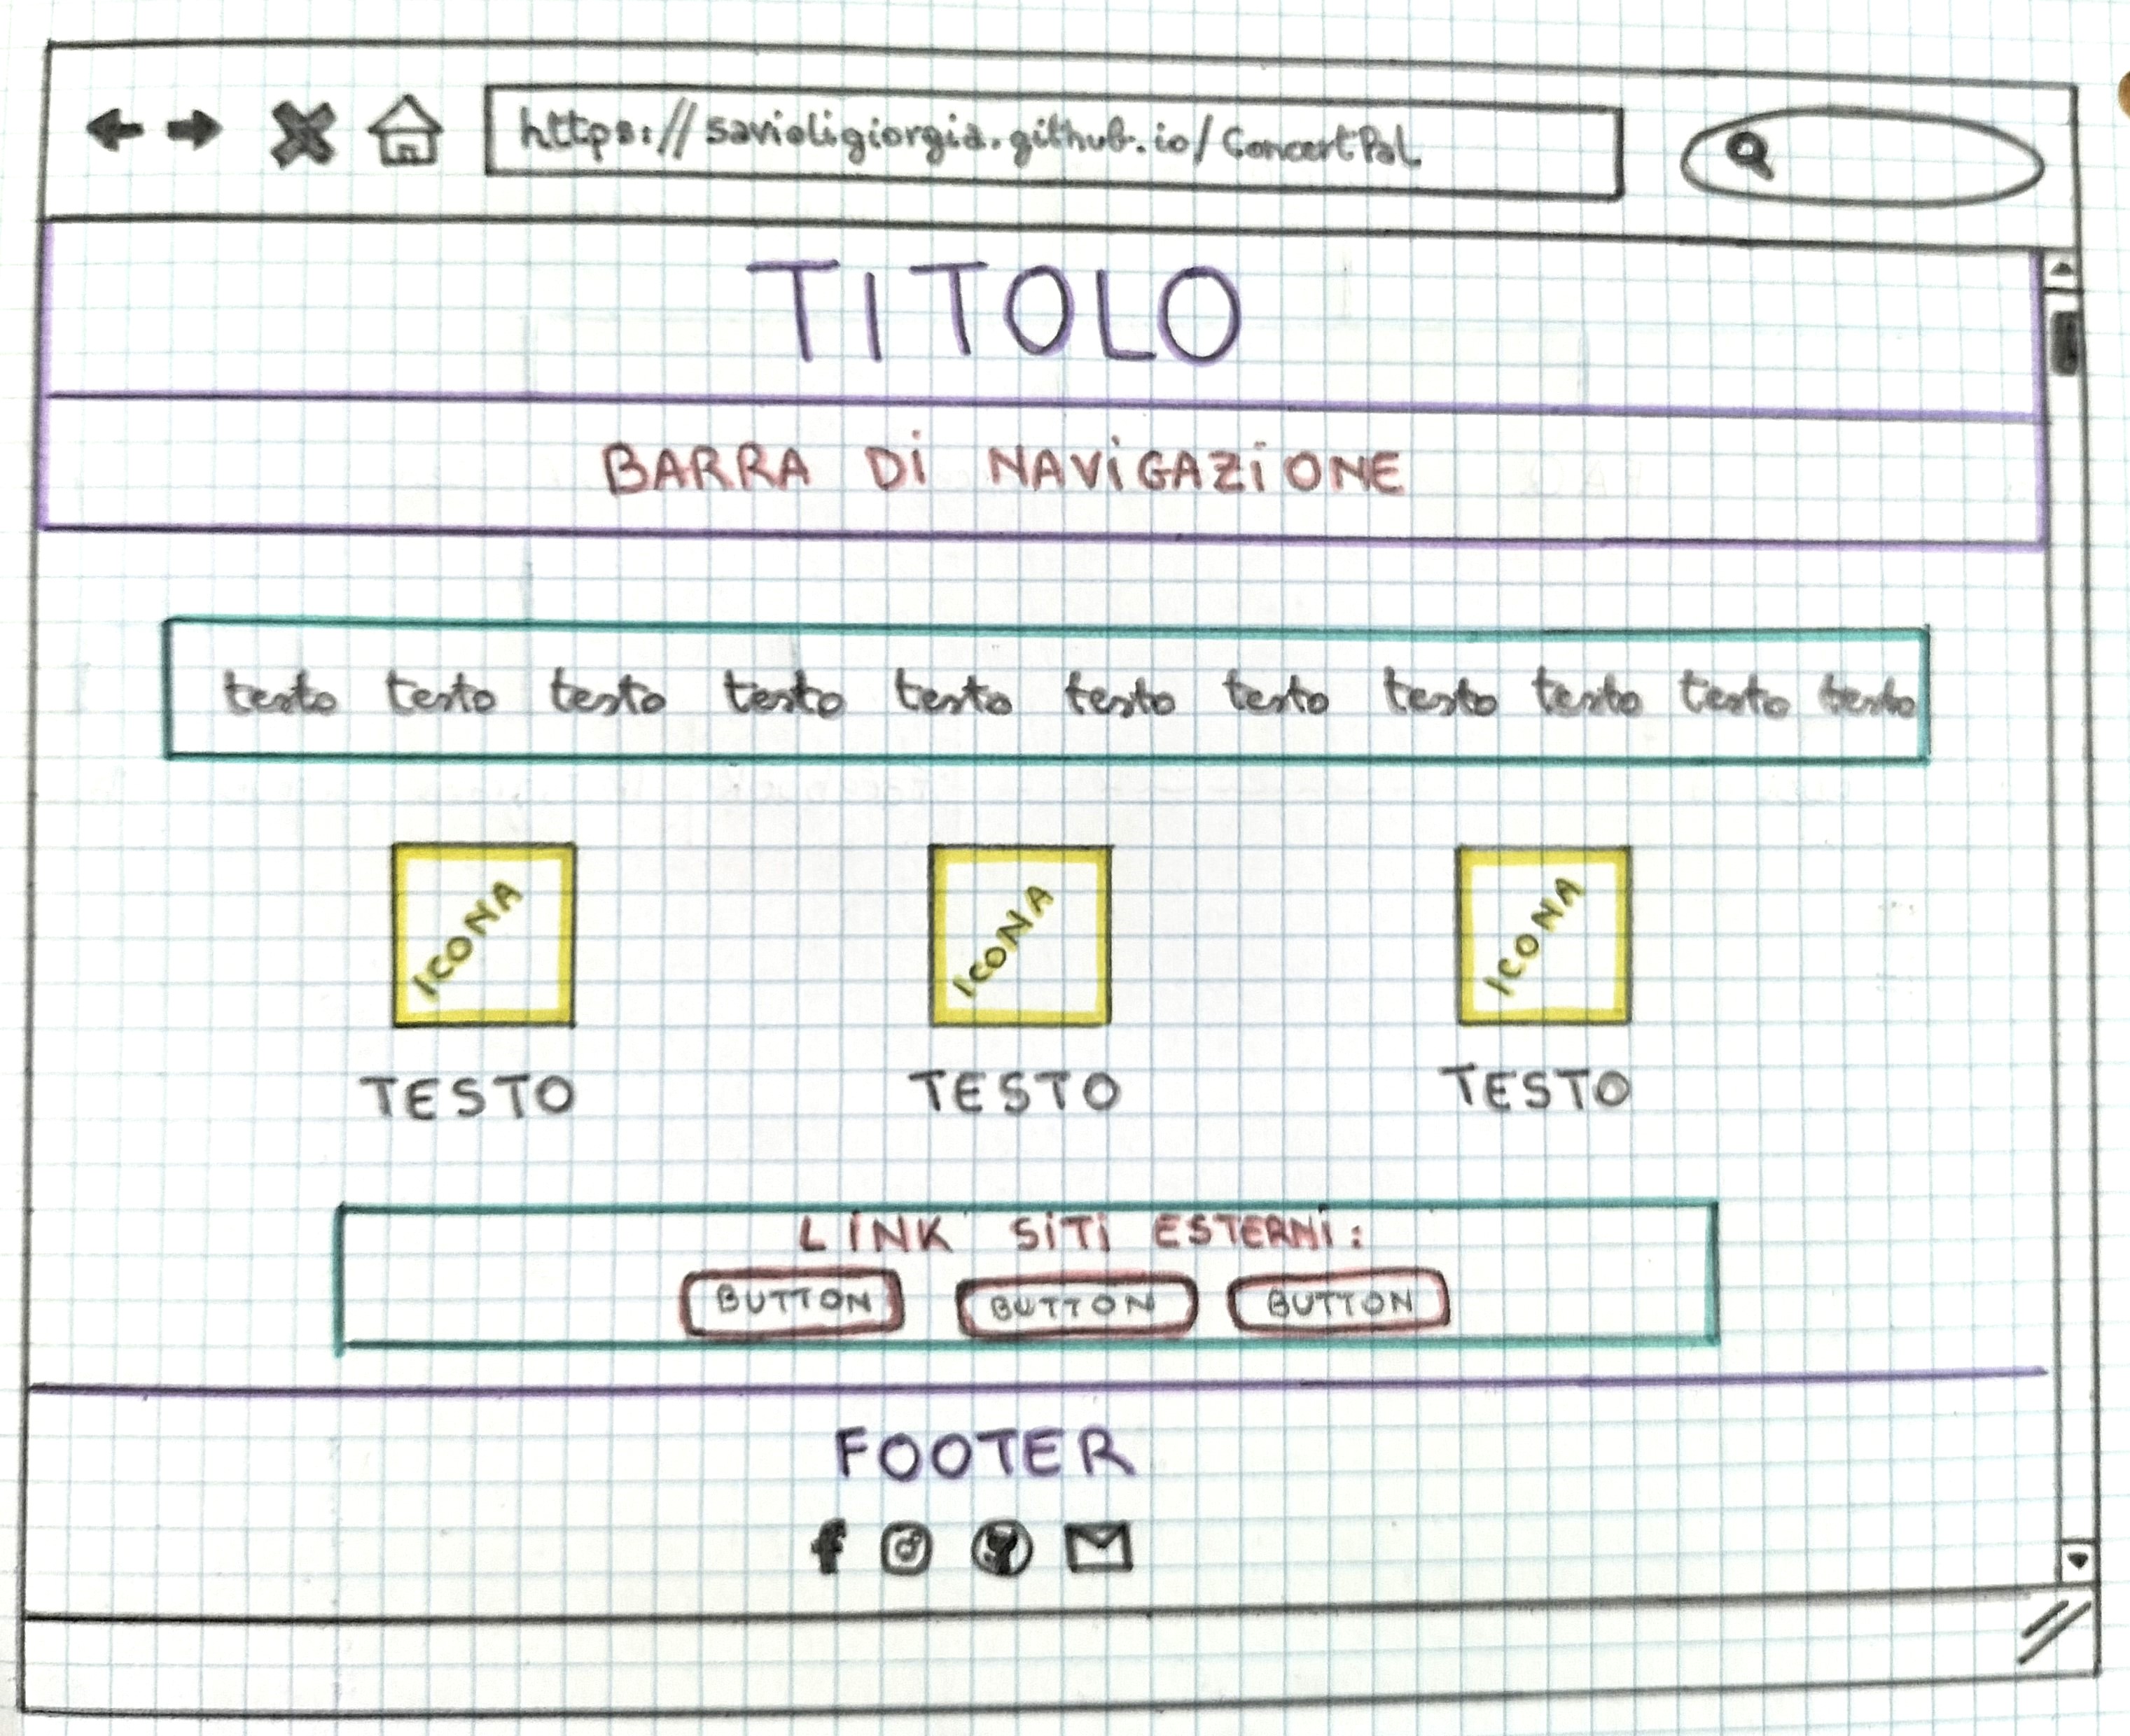 https://savioligiorgia.github.io/ConcertPal
TITOLO
BARRA Di NAViGAZiONE
testo testo testo testo testo testo testo testo testo testo testo
ICONA ICONA ICONA
TESTO TESTO TESTO
LiNK SiTi ESTERNi:
BUTTON BUTTON BUTTON
FOOTER